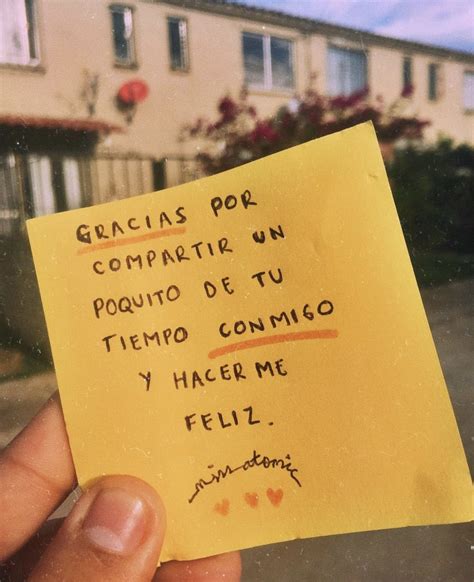 GRACIAS POR
COMPARTIR UN
POQUITO DE TU
TIEMPO CONMIGO
Y HACERME
FELIZ.
miss atomic